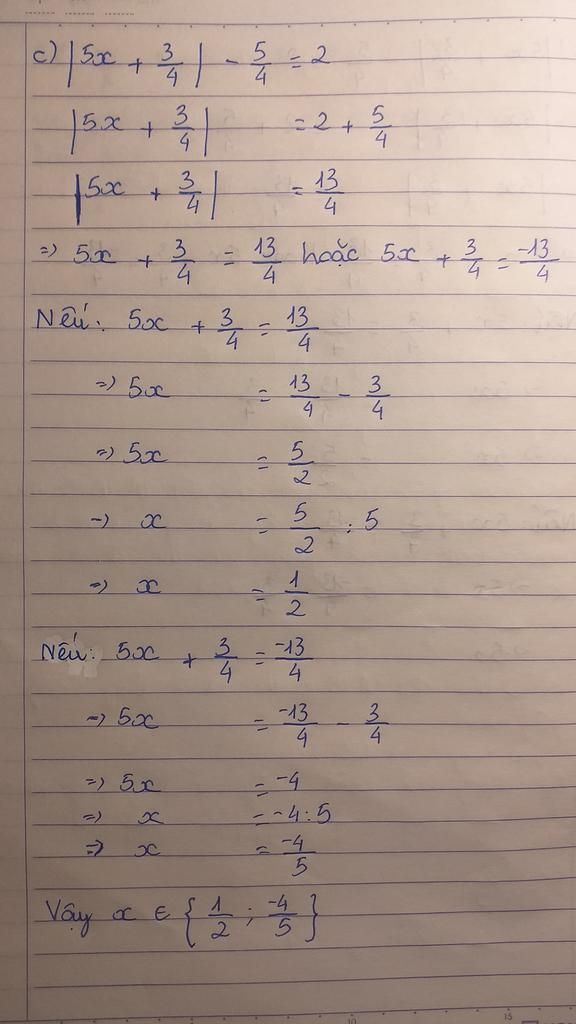 c) |5x + 3/4| - 5/4 = 2
|5x + 3/4| = 2 + 5/4
|5x + 3/4| = 13/4
=) 5x + 3/4 = 13/4 hoặc 5x + 3/4 = -13/4
Nếu: 5x + 3/4 = 13/4
=) 5x = 13/4 - 3/4
=) 5x = 5/2
=) x = 5/2 : 5
=) x = 1/2
Nếu: 5x + 3/4 = -13/4
=) 5x = -13/4 - 3/4
=) 5x = -4
=) x = -4 : 5
=) x = -4/5
Vậy x ∈ {1/2 ; -4/5}
10 15